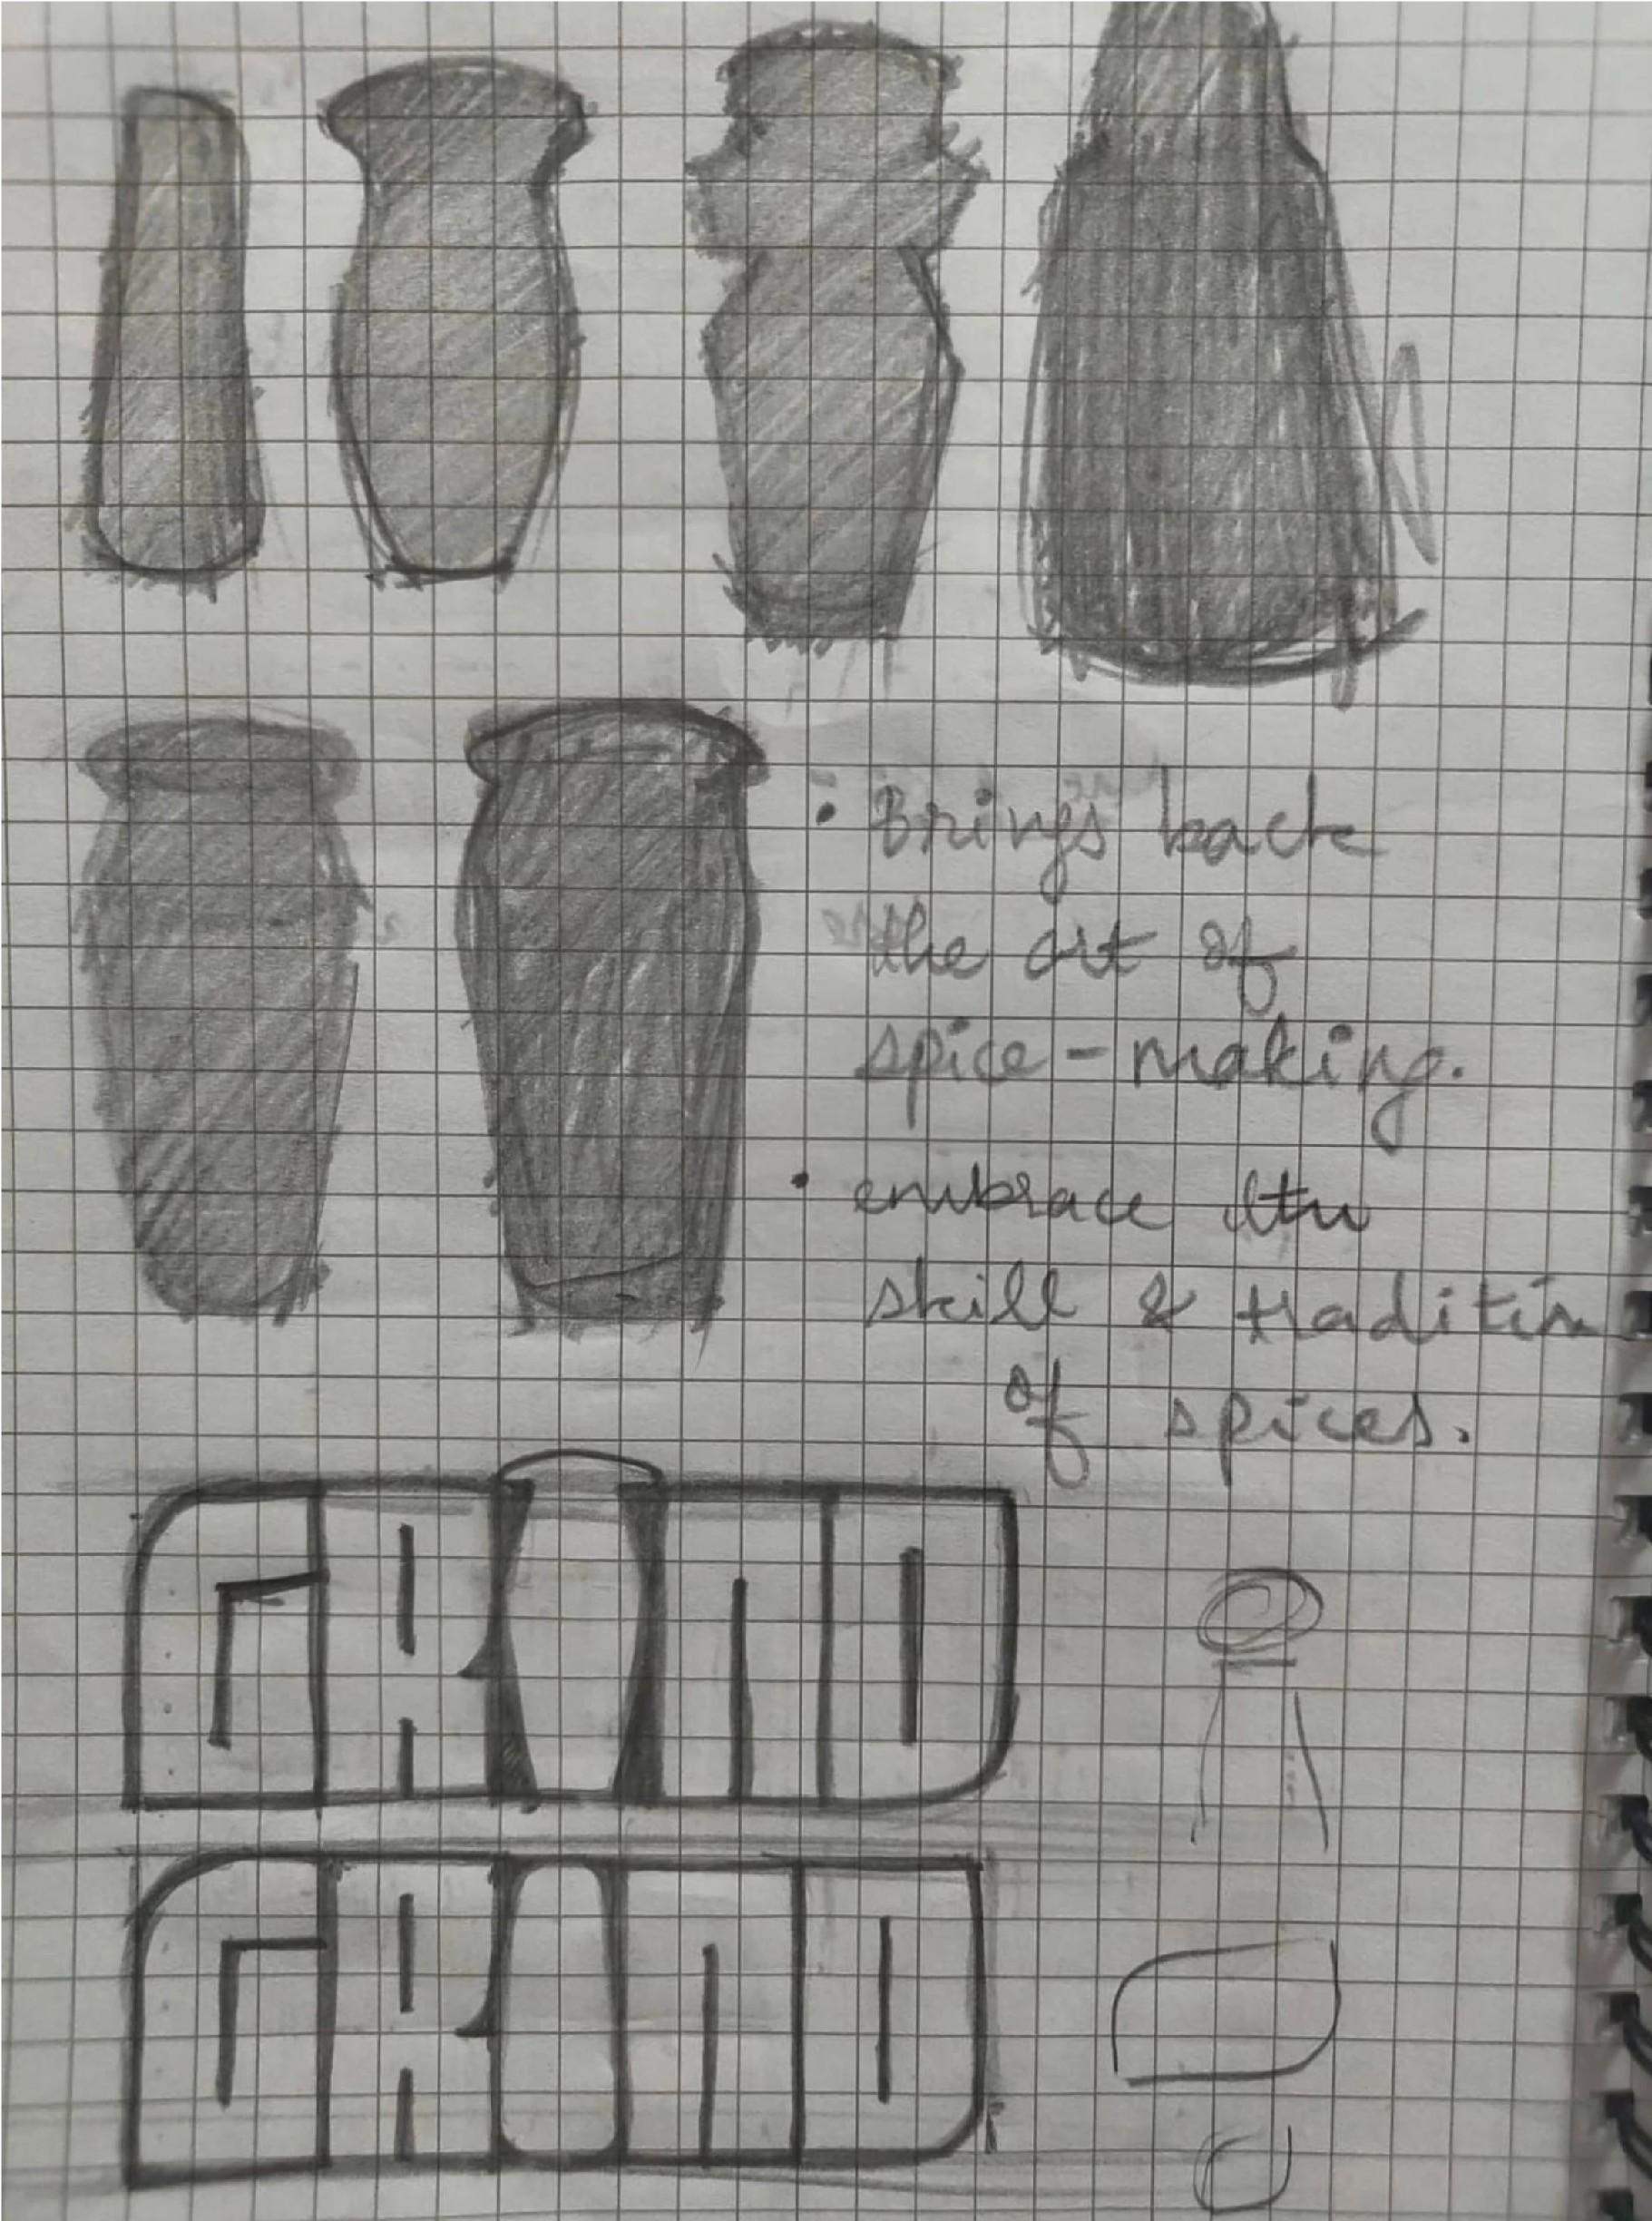 • Brings back
the art of
spice-making.
• embrace the
skill & tradition
of spices.
GRIND
GRIND